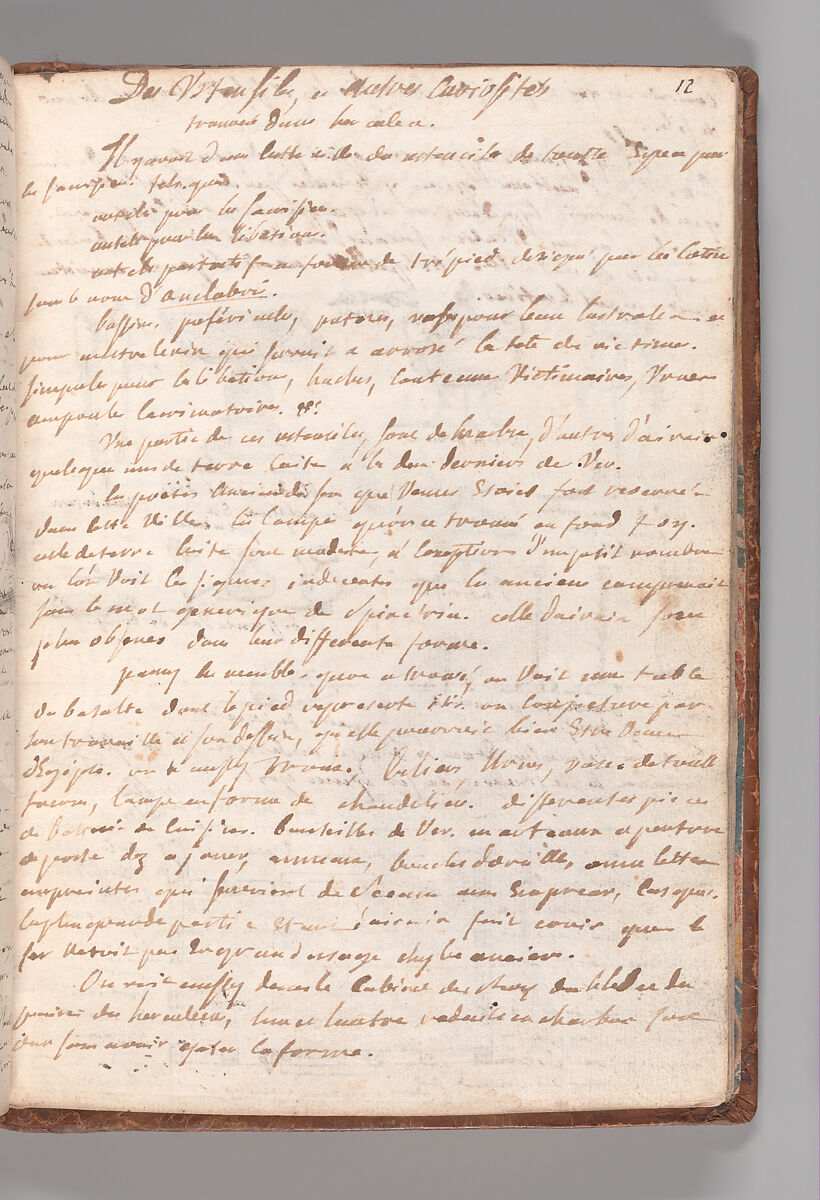 12
Des Ustensiles, et autres Curiositées
trouvée dans herculea.
Il y avoit dans cette ville des ustenciles de toutte Espece pour
les sacrifices tels que
autels pour les sacrifices.
autels pour les libations.
autels portatifs en forme de trépied designé par les
sous le nom d'anclabris.
bassins, préféricules, pateres, vases pour leau lustrale et
pour mettre le vin qui servoit a arrosé la tete des victimes.
simpules pour les libations, haches, Couteaux Victimaires, Urnes
ampoule lacrimatoires. &c.
Une partie de ces ustensiles, sont de marbre, d'autres d'airain
quelque uns de terre Cuite et les deux derniers de Ver.
les poëtes Anciens disent que Venus Etoit fort reverrée
dans cette Ville. les lampes qu'on a trouvé en font foy.
celle de terre Cuite sont modeste, a l'exception d'un petit nombre
ou l'on Voit les figures indecentes que les anciens comprenoit
sous le mot generique de Spinéria. celle d'airain sont
plus obsenes dans leur differente forme.
parmy les meubles qu'on a trouvé, on Voit une table
de basalte dont le pied represente isis. on Conjecture par
son travaille et son dessein, qu'elle pourroit bien Estre Venue
d'Egipte. on a aussy trouvé, Urnes, vases de toutte
facons, lampe en forme de chandelier. differentes pieces
de batterie de Cuisines. bouteilles de Ver. marteaux et penture
de porte dez a jouer, anneaux, boucles d'oreilles, amulettes
empreintes qui servoient de Sceaux aux Casques.
la plus grande partie Etant d'airain fait voir que le
fer n'etoit pas En grand usage chez les anciens.
On voit aussy dans le Cabinet du Roy du bled et du
pain des herculéens, l'un et l'autre reduit en charbon sont
sans avoir gater la forme.